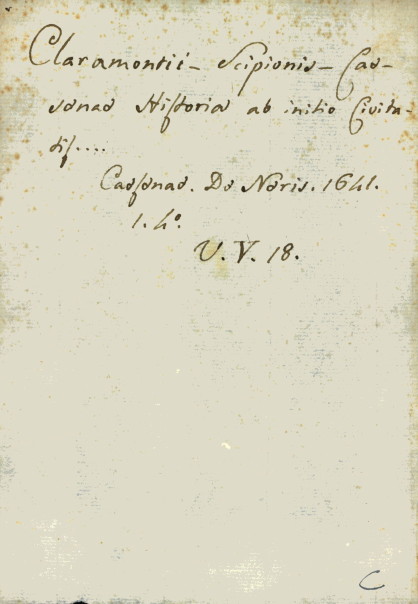 Claramontii - Scipionis - Cae-
senae Historia ab initio Civita-
tis....
Caesenae. De Neris. 1641.
1. 4º.
U. V. 18.
C